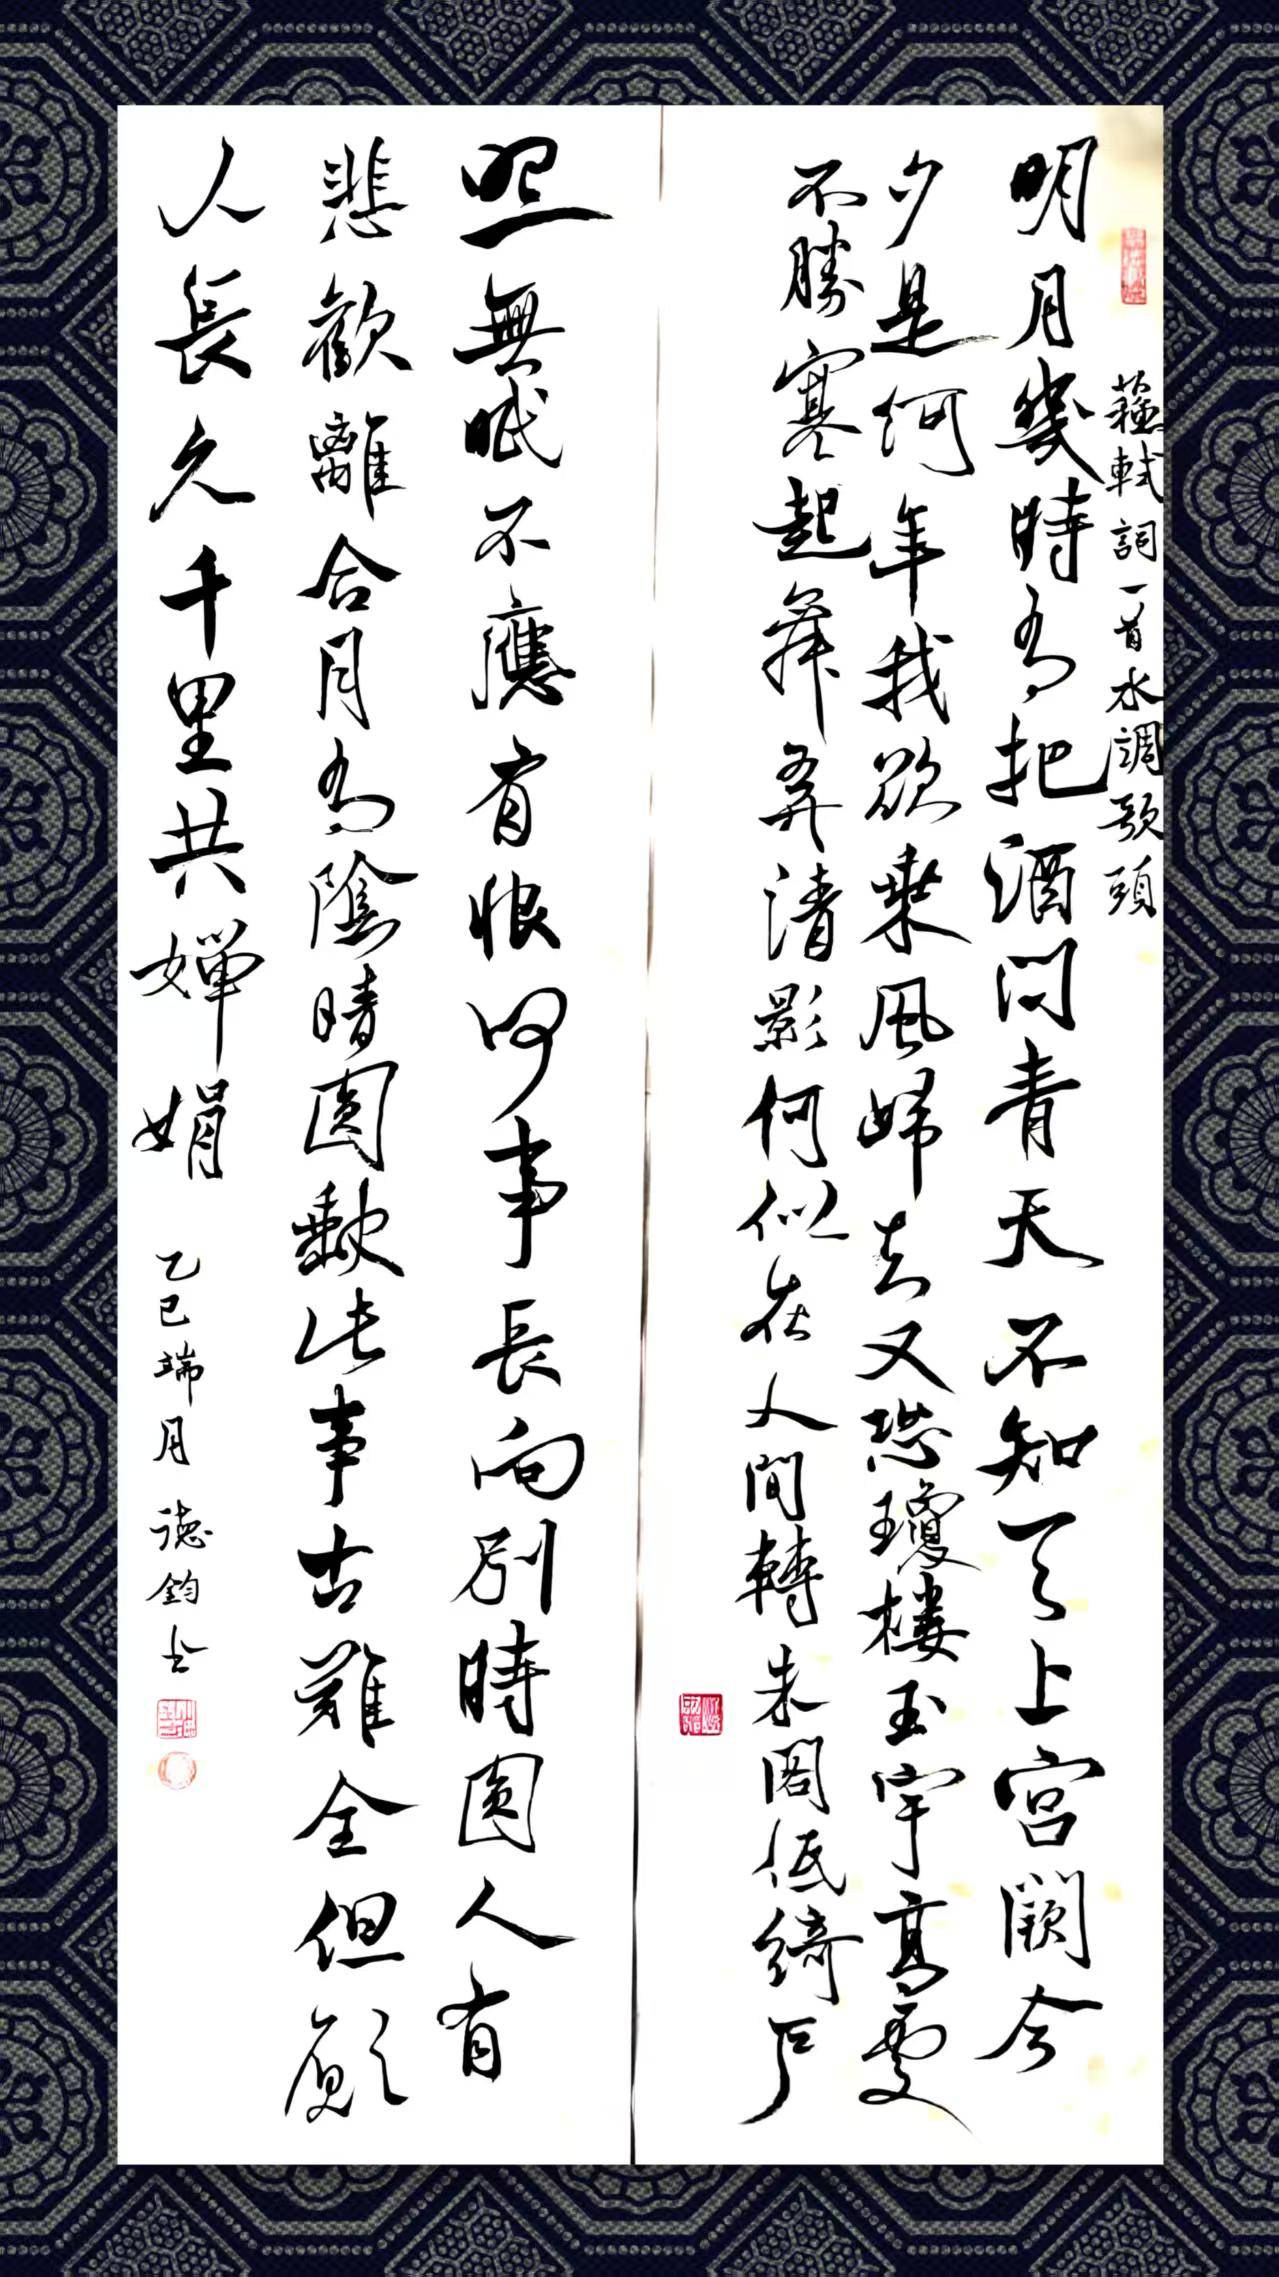 蘇軾詞一首水調歌頭
明月幾時有把酒問青天不知天上宮闕今
夕是何年我欲乘風歸去又恐瓊樓玉宇高處
不勝寒起舞弄清影何似在人間轉朱閣低綺戶
照無眠不應有恨何事長向別時圓人有
悲歡離合月有陰晴圓缺此事古難全但願
人長久千里共嬋娟
乙巳端月德鈞書